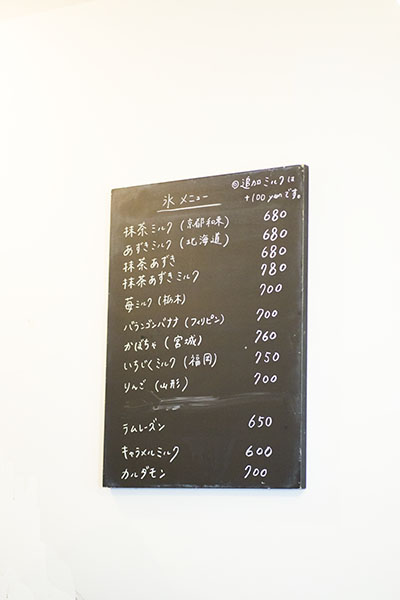 氷メニュー
◎追加ミルクは
+100yenです。
抹茶ミルク (京都和束) 680
あずきミルク (北海道) 680
抹茶あずき 680
抹茶あずきミルク 780
苺ミルク (栃木) 700
バランゴンバナナ (フィリピン) 700
かぼちゃ (宮城) 760
いちじくミルク (福岡) 750
りんご (山形) 700
ラムレーズン 650
キャラメルミルク 600
カルダモン 700